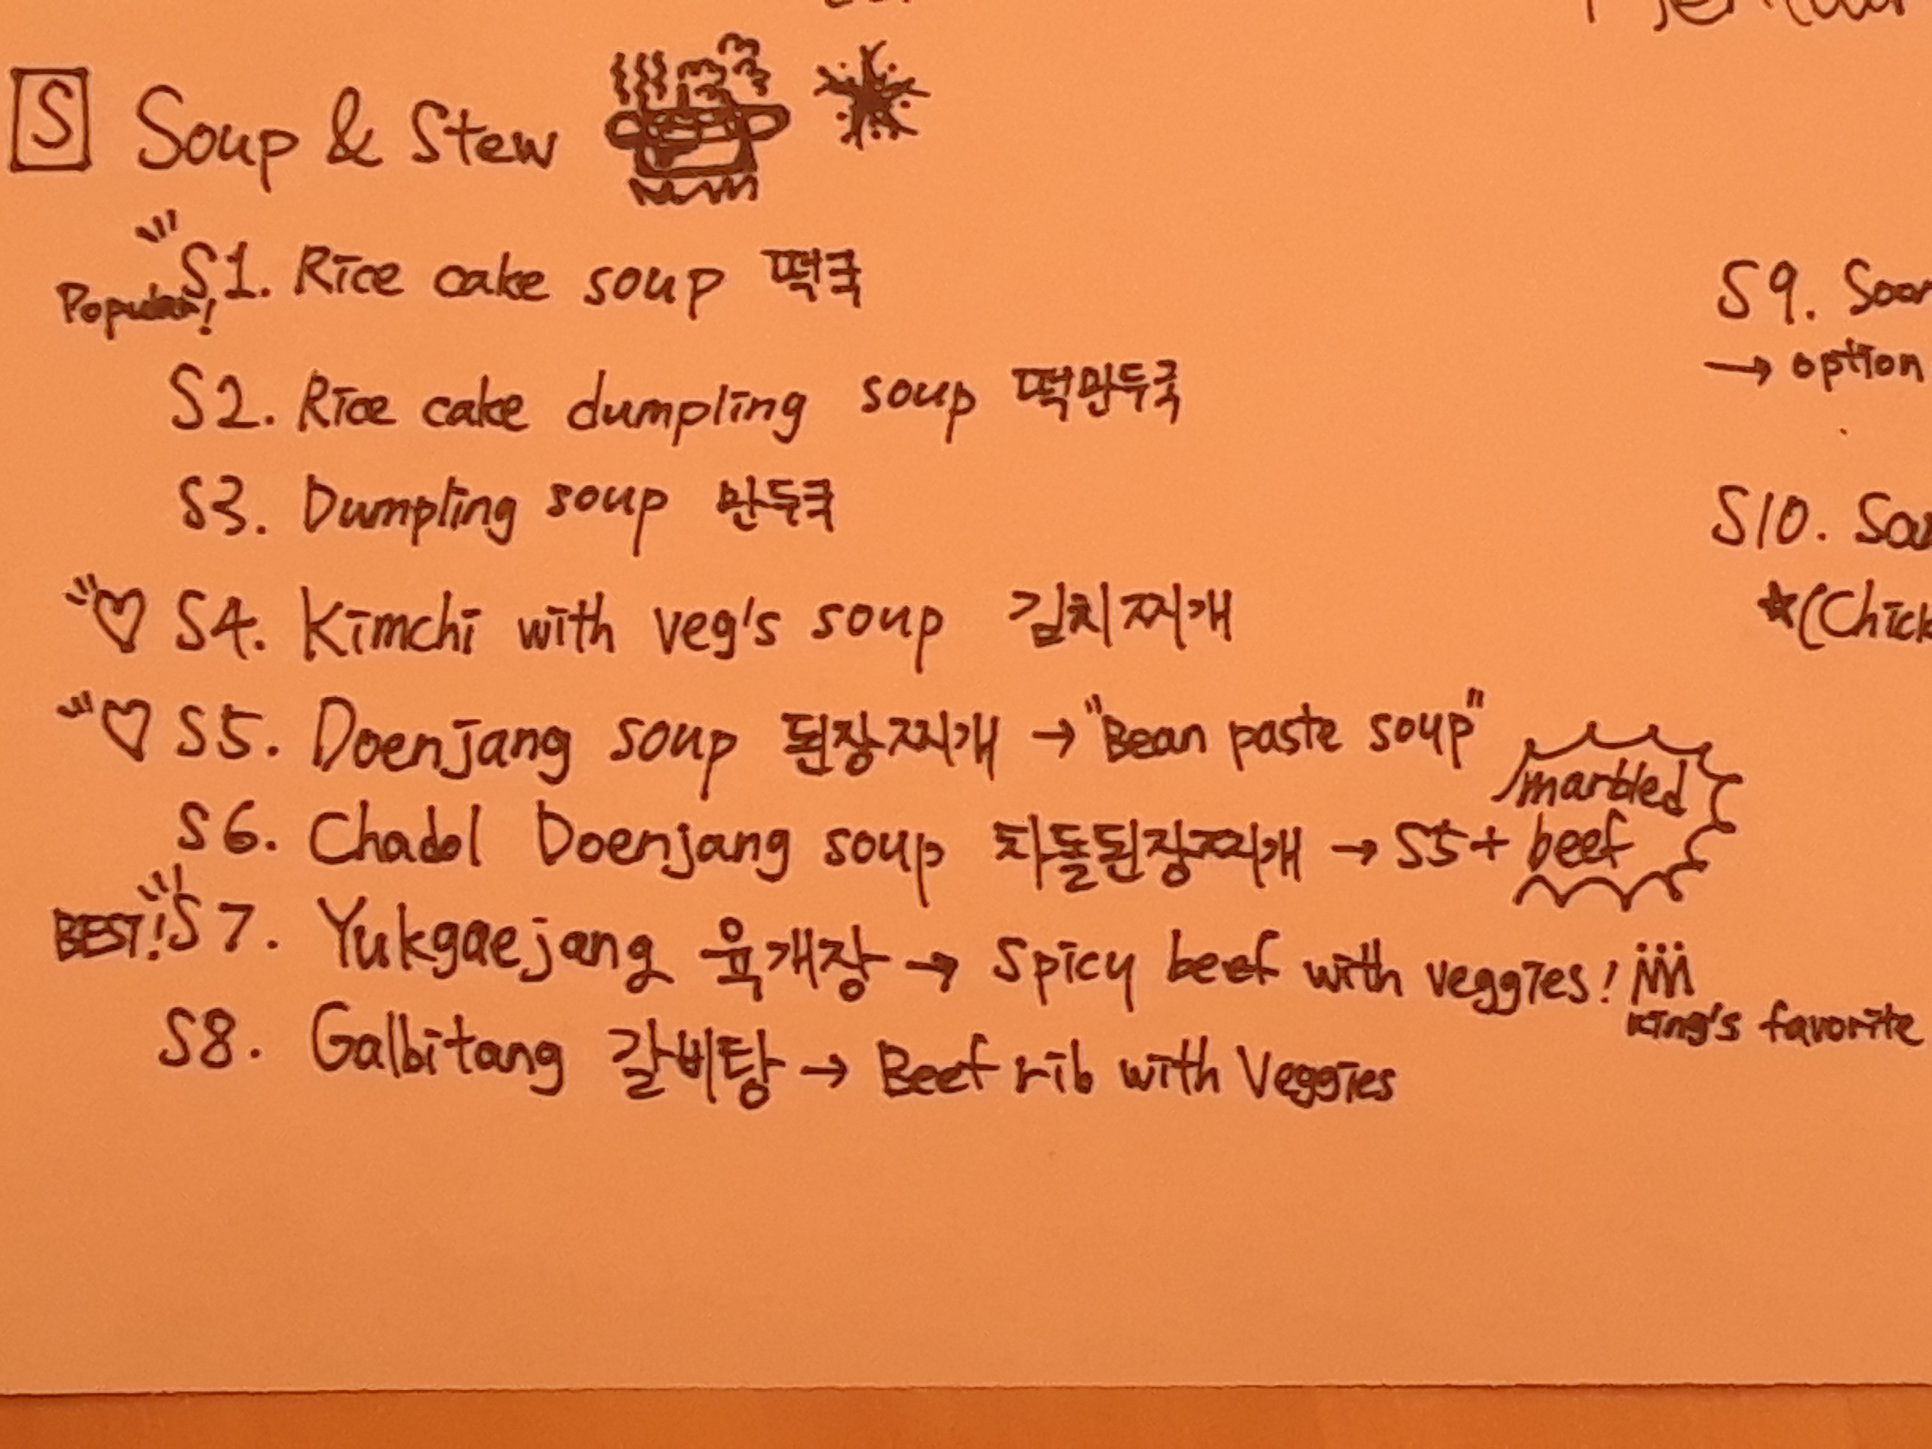 S Soup & Stew
S1. Rice cake soup 떡국
Popular!
S2. Rice cake dumpling soup 떡만두국
S3. Dumpling soup 만두국
S4. Kimchi with veg's soup 김치찌개
S5. Doenjang soup 된장찌개 → "Bean paste soup"
S6. Chadol Doenjang soup 차돌된장찌개 → S5 + marbled beef
BEST! S7. Yukgaejang 육개장 → Spicy beef with veggies!
King's favorite
S8. Galbitang 갈비탕 → Beef rib with Veggies
S9.
→ option
S10.